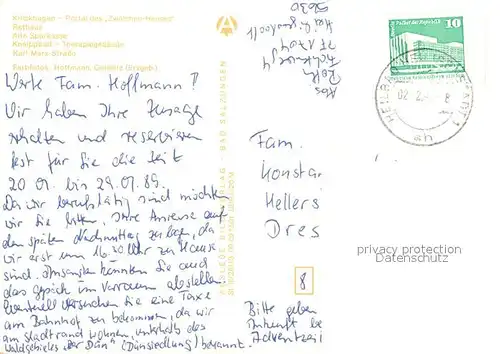 Rathaus
Alte Sparkasse
Karl Marx-Straße
Farbfotos: Hoffmann, Geisleden
BAD SALZUNGEN
5630
Abs.
10
HEILBAD HEILIGENSTADT 1
ah
Werte Fam. Hoffmann!
Wir haben Ihre Zusage
erhalten und reservieren
fest für Sie die Zeit
20.07. bis 29.07.89.
Da wir berufstätig sind möchten
wir Sie bitten, Ihre Anreise auf
den späten Nachmittag zu legen, da
wir erst um 16.30 Uhr zu Hause
sind. Ansonsten könnten Sie auch
das Gepäck im Vorraum abstellen.
Eventuell versuchen Sie eine Taxe
am Bahnhof zu bekommen, da wir
am Stadtrand wohnen, unterhalb des
Waldgebietes "Der Dün" (Dünsiedlung) bekannt.
Fam.
Konstan
Hellers
Dres
privacy protection
Datenschutz
8
Bitte geben
Adventzei